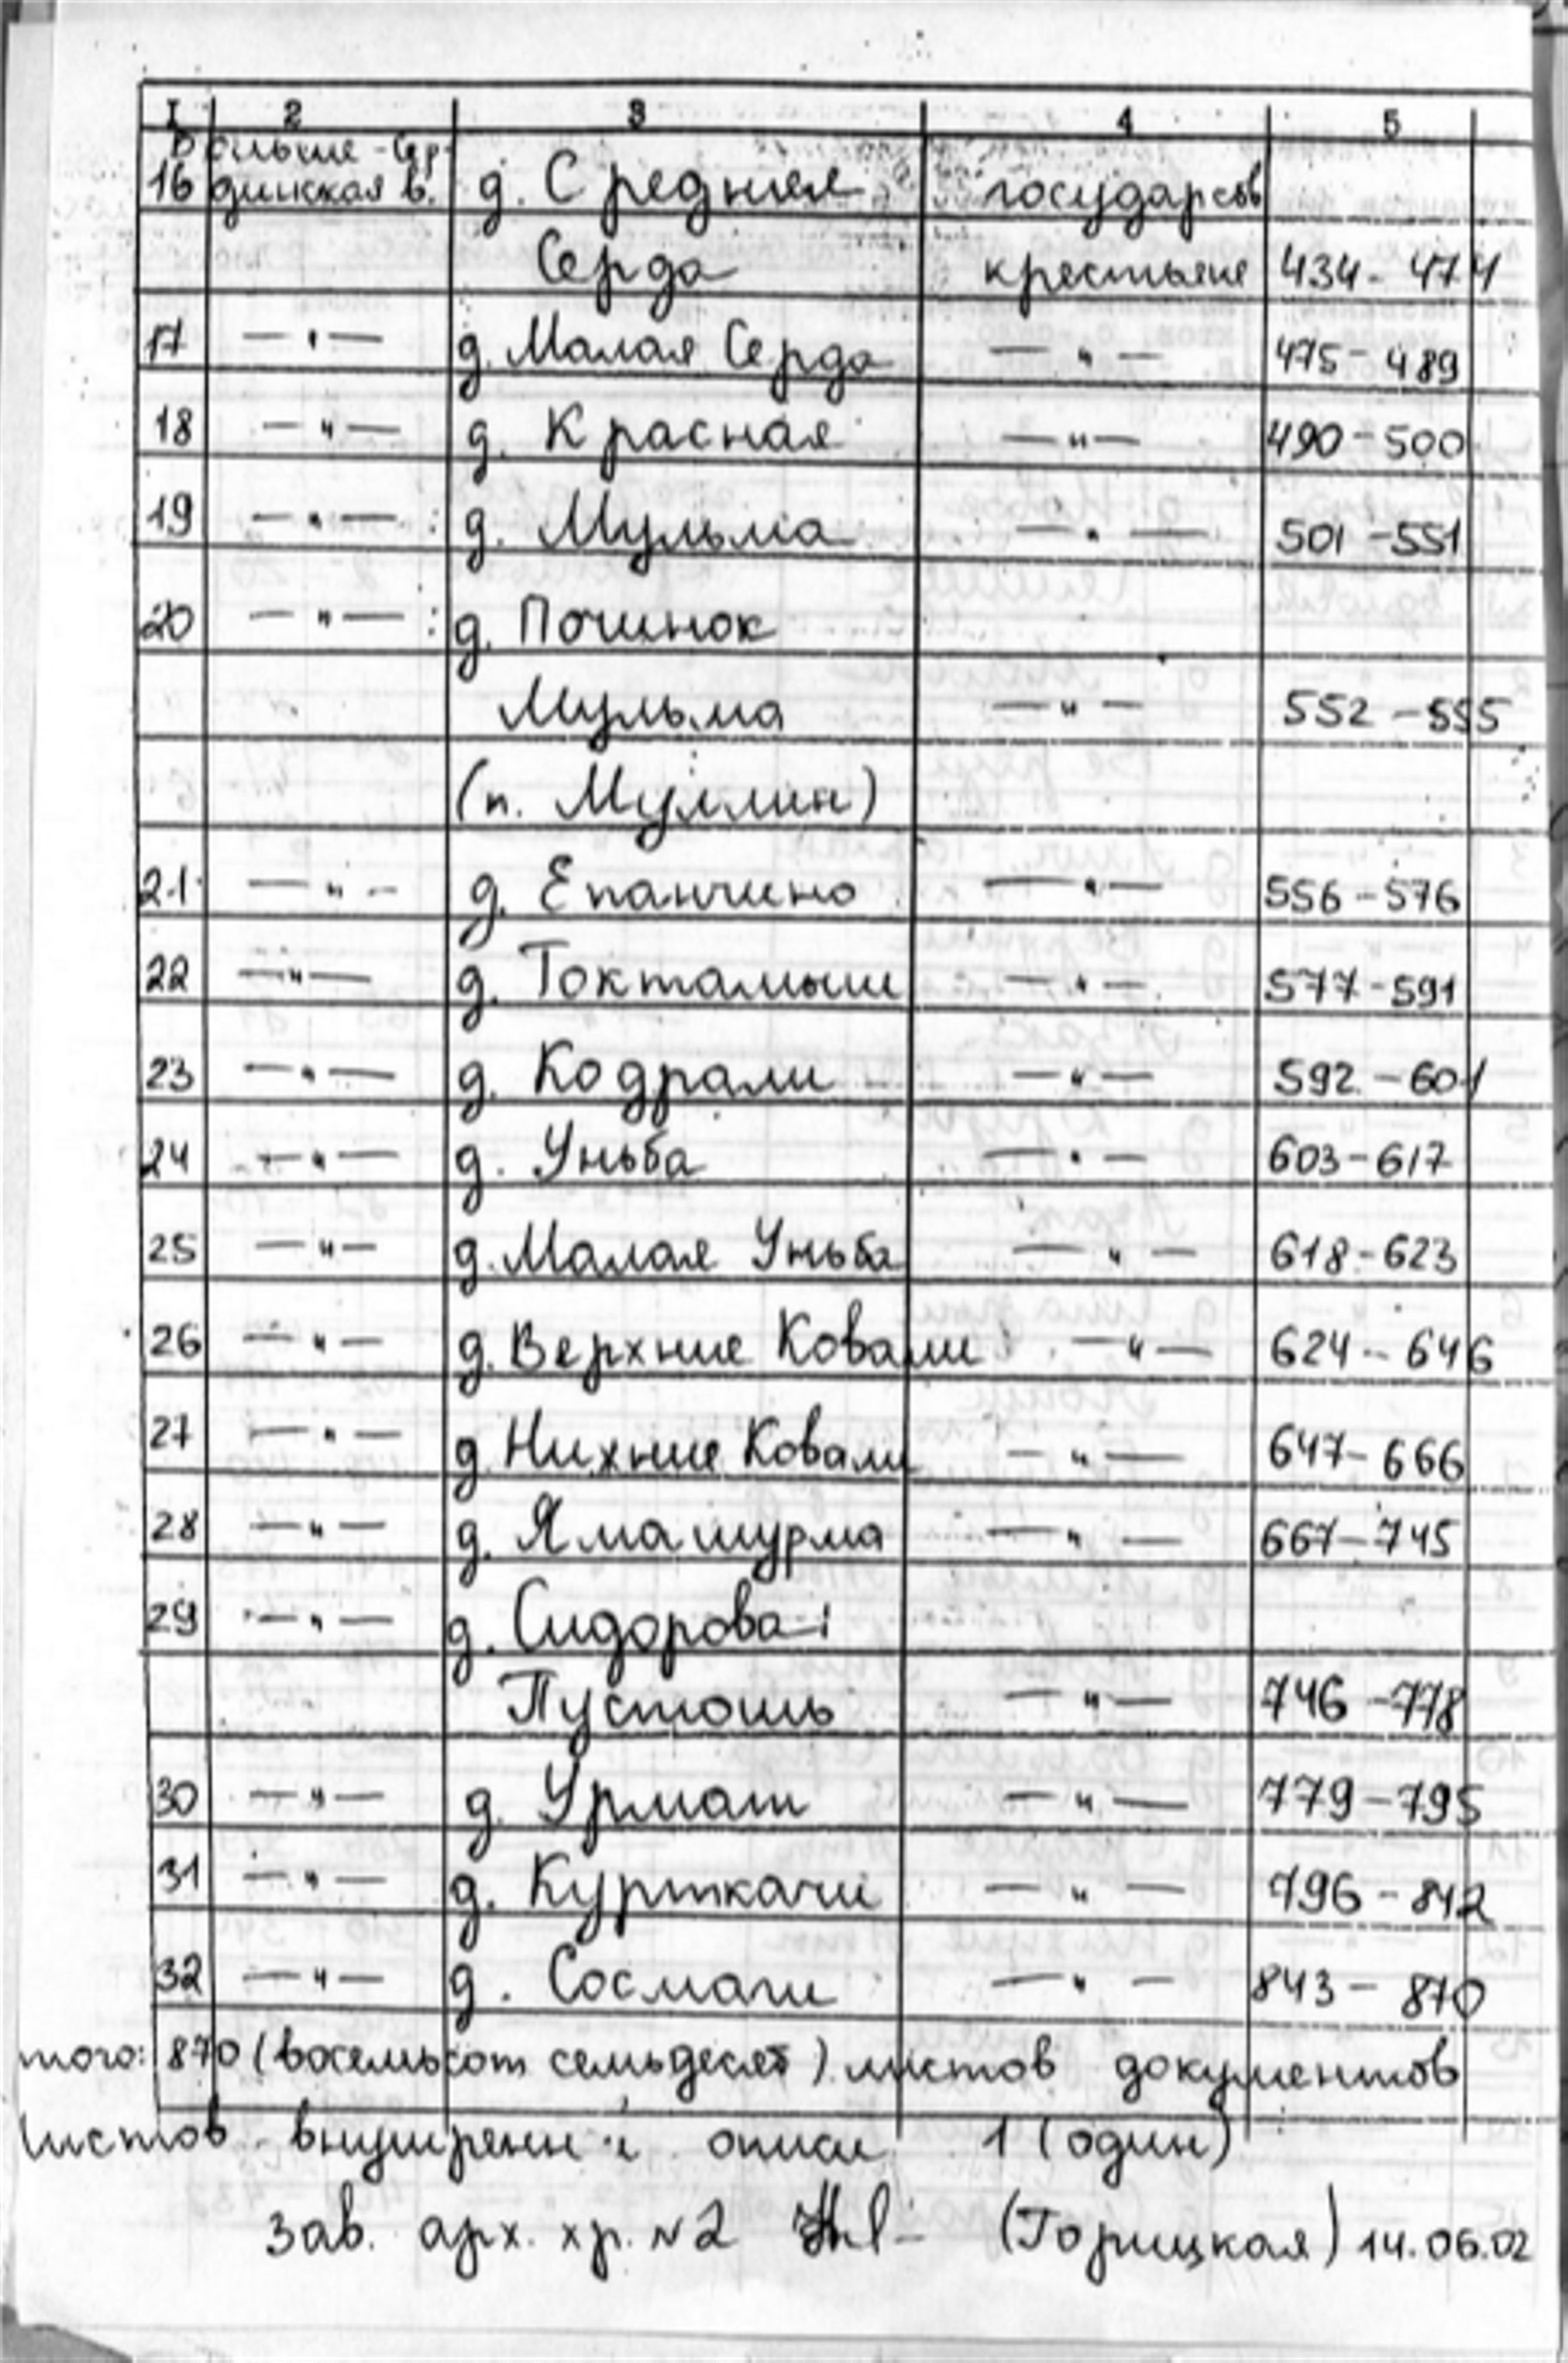 1 2 3 4 5
Больше-Сер-
16 динская в. д. Средняя государств
Серда крестьяне 434-474
17 —"— д. Малая Серда —"— 475-489
18 —"— д. Красная —"— 490-500
19 —"— д. Мульма —"— 501-551
20 —"— д. Починок
Мульма —"— 552-555
(п. Муллин)
21 —"— д. Епанчино —"— 556-576
22 —"— д. Токтамыш —"— 577-591
23 —"— д. Кодрали —"— 592-601
24 —"— д. Уньба —"— 603-617
25 —"— д. Малая Уньба —"— 618-623
26 —"— д. Верхние Ковали —"— 624-646
27 —"— д. Нихние Ковали —"— 647-666
28 —"— д. Ямашурма —"— 667-745
29 —"— д. Сидорова
Пустошь —"— 746-778
30 —"— д. Урмат —"— 779-795
31 —"— д. Курткачи —"— 796-842
32 —"— д. Сосмаги —"— 843-870
того: 870 (восемьсот семьдесят) листов документов
листов внутренн й описи 1 (один)
Зав. арх. хр. №2 (Горицкая) 14.06.02